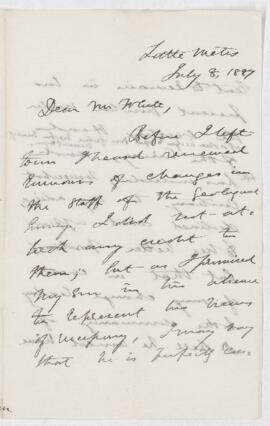 Little Metis
July 8, 1887
Dear Mr White,
Before I left
town I heard renewed
rumours of changes in
the staff of the Geological
Survey. I did not at-
tach any credit to
them; but as I promised
my son in his absence
to represent his views
if necessary, I may say
that he is perfectly